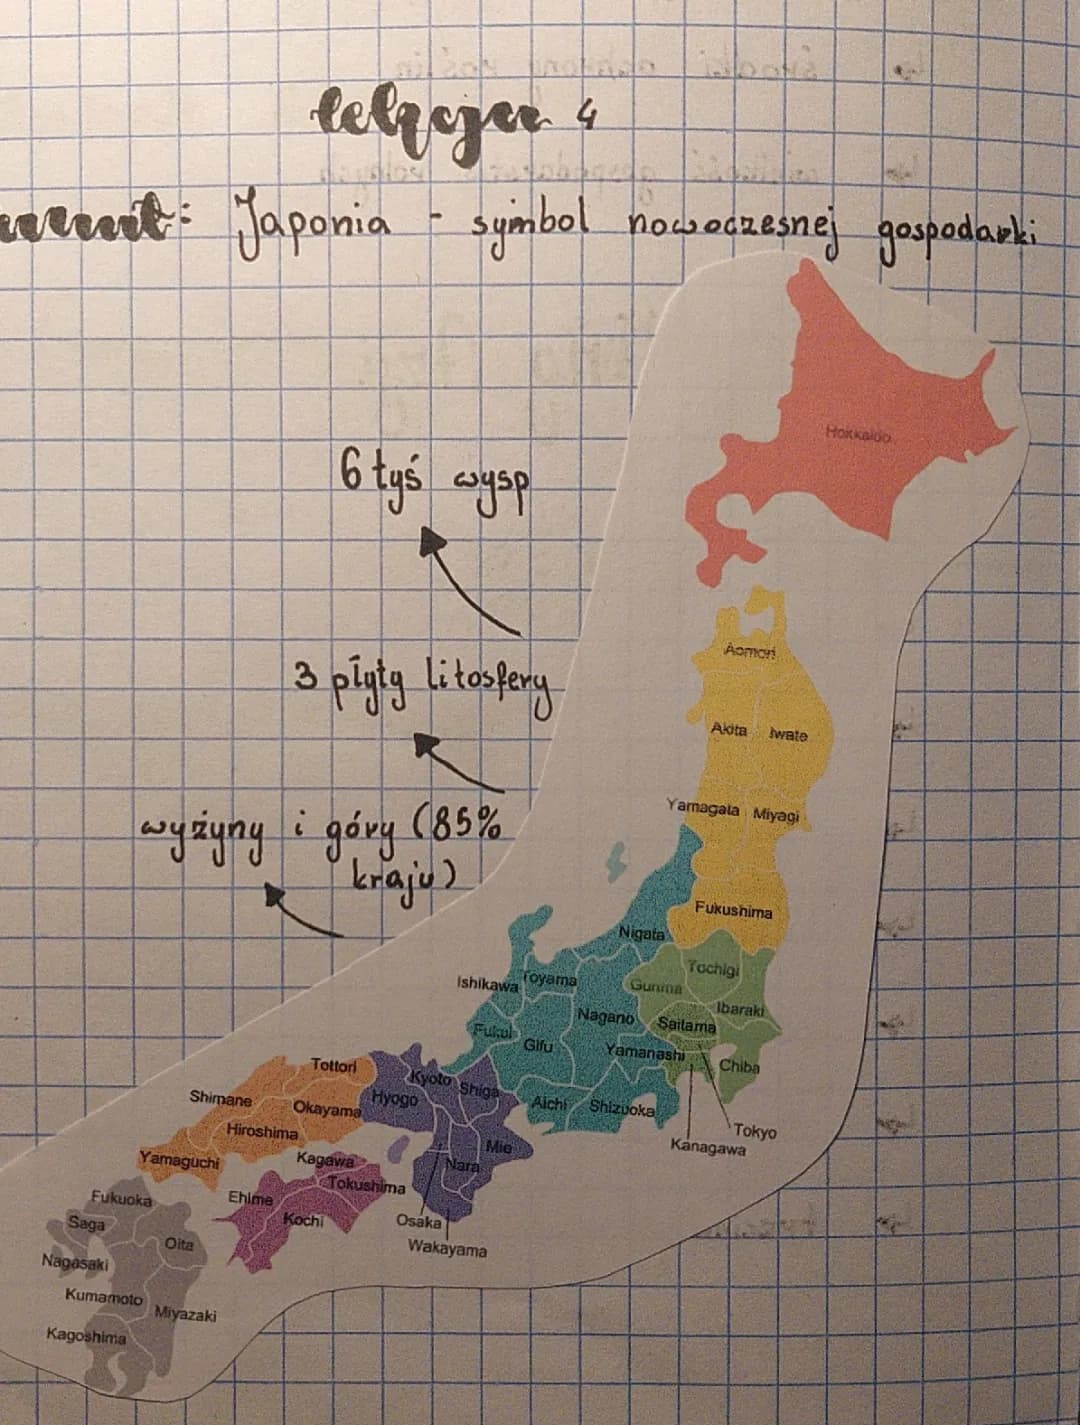 lekcja 4
temat: Japonia - symbol nowoczesnej gospodarki
6 tyś wysp
3 płyty litosfery
wyżyny i góry (85%
kraju)
Hokkaido
Aomori
Akita Iwate
Yamagata Miyagi
Fukushima
Nigata
Tochigi
Ishikawa Toyama
Gunma
Ibaraki
Nagano
Saitama
Fukui
Gifu
Yamanashi
Chiba
Tottori
Kyoto
Shiga
Shimane
Hyogo
Okayama
Aichi
Shizuoka
Tokyo
Hiroshima
Mie
Kanagawa
Yamaguchi
Kagawa
Nara
Tokushima
Fukuoka
Ehime
Kochi
Osaka
Saga
Oita
Wakayama
Nagasaki
Kumamoto
Miyazaki
Kagoshima